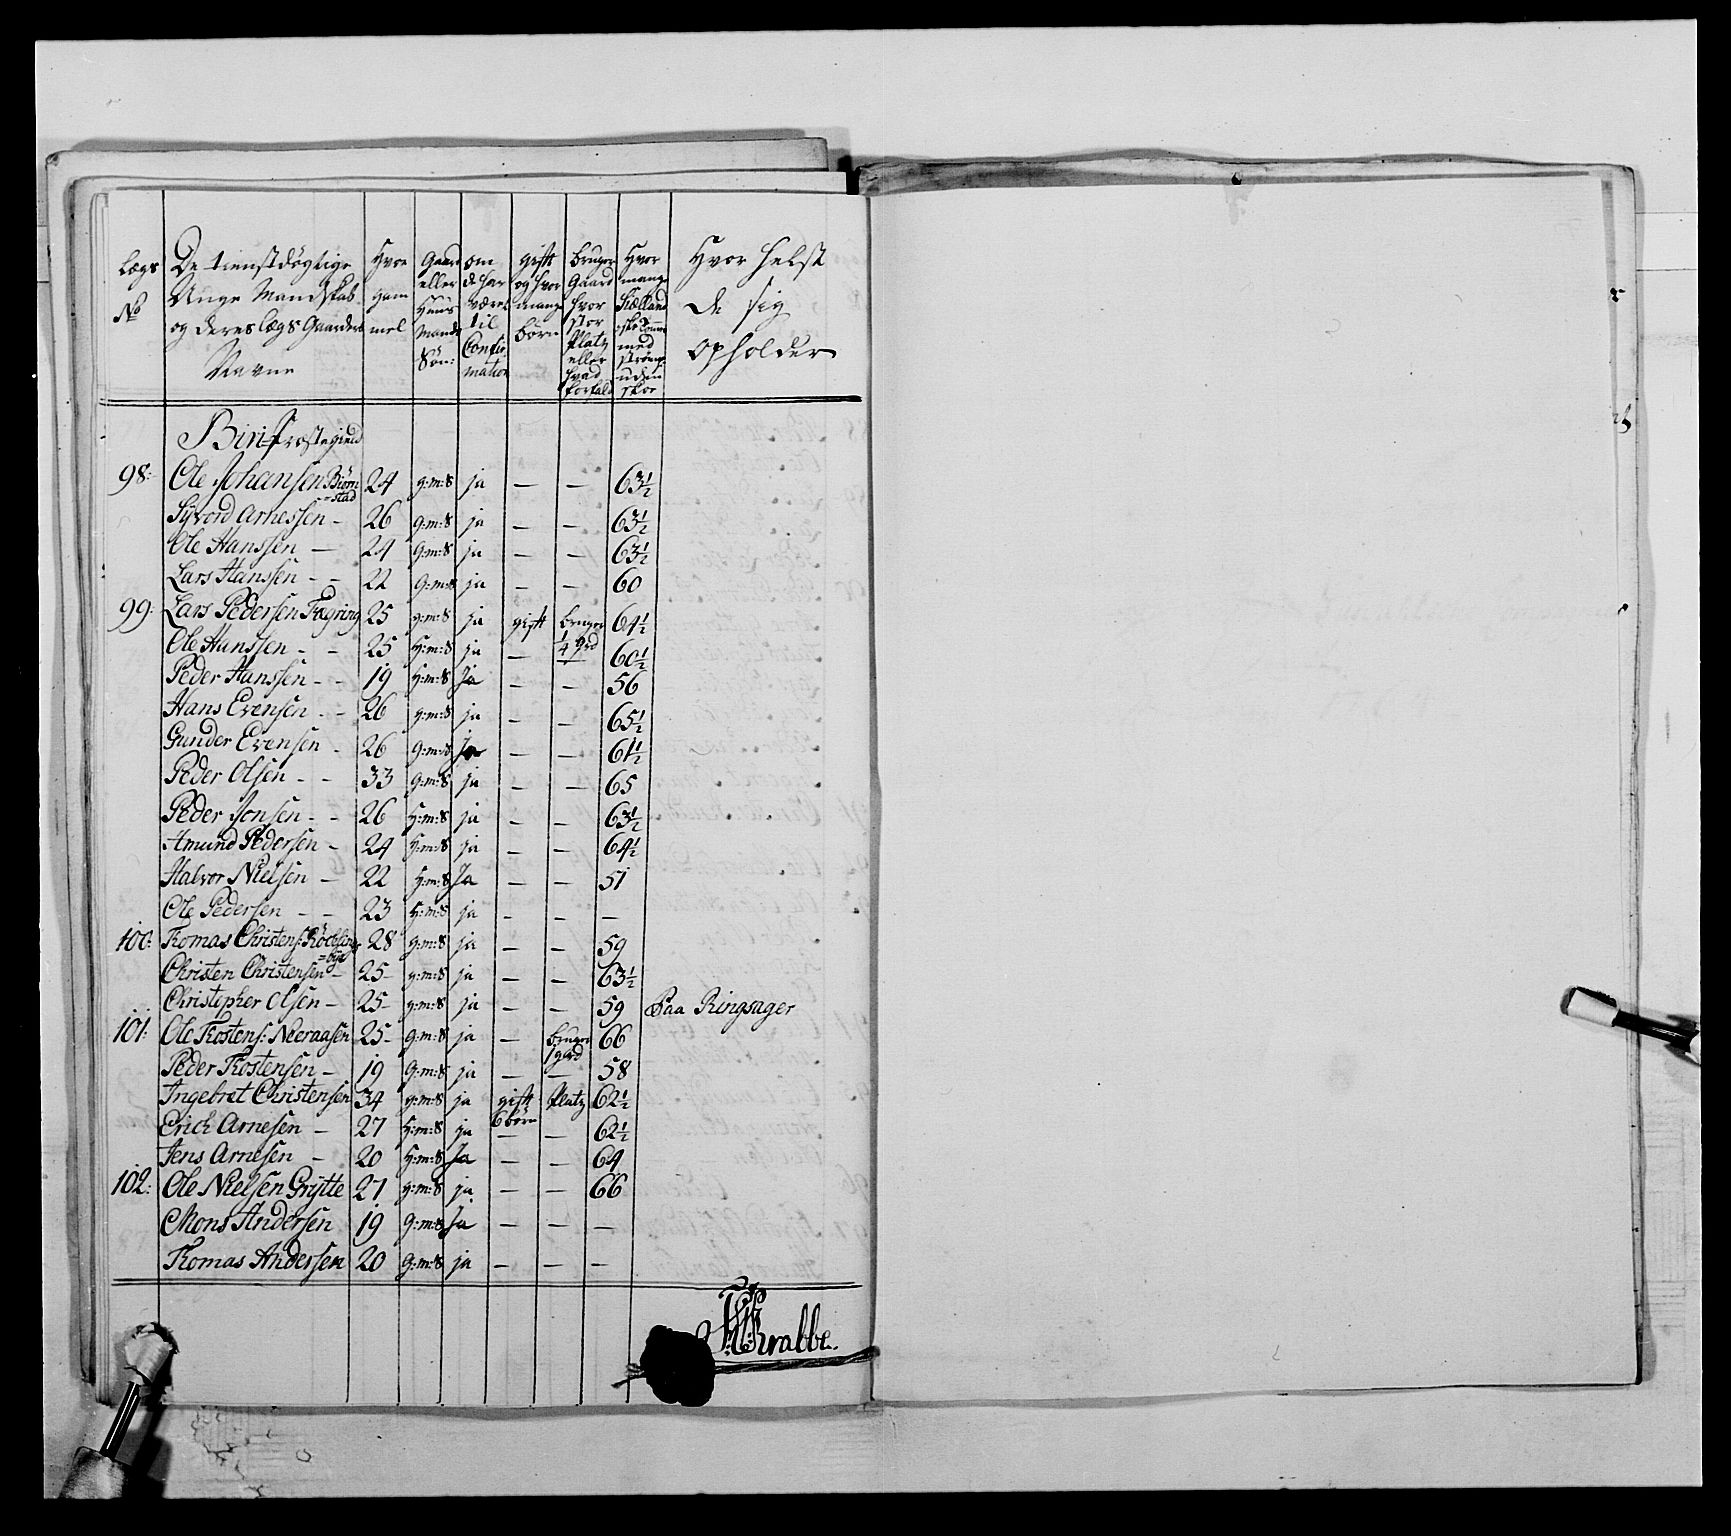 Lægs No | De tienstdögtige Unge Mandskab og deres Lægs Gaarders Navne | Hvor gammel | Gaard eller Huus Mands Sön: | om de har været til Confirmation | gift og hvor mange börn | bruger Gaard hvor stor Platz eller hvad forfald | Hvor mange Siællandske Tomme med Strömper uden skoe | Hvor helst de sig opholder
Biri Præstegield
98: Ole Johansen Biörnstad 24 g:m:S ja — — 63½
Syvord Arnessen – 26 g:m:S ja — — 63½
Ole Hanssen — 24 g:m:S ja — — 63½
Lars Hanssen - - 22 g:m:S ja — — 60
99: Lars Pedersen Fægring 25 g:m:S ja gift bruger ¼ grd 64½
Ole Hanssen - - 25 H:m:S ja — — 60½
Peder Hanssen - - 19 H:m:S Ja — — 56
Hans Evensen - - 26 g:m:S ja — — 65½
Gunder Evensen - 26 g:m:S Ja — — 61½
Peder Olsen - - 33 g:m:S ja — — 65
Peder Jonsen - - 26 H:m:S ja — — 63½
Amund Pedersen - 24 H:m:S ja — — 64½
Halvor Nielsen - 22 H:m:S Ja — — 51
Ole Pedersen - - 23 H:m:S ja — — —
100: Tomas Christens: 28 g:m:S ja — — 59
Christen Christensen - 25 g:m:S ja — — 63½
Christopher Olsen - 25 g:m:S ja — — 59 Paa Ringsager
101: Ole Tostens: Neeraasen 25 g:m:S ja — bruger 1 gard 66
Peder Tostensen - 19 g:m:S ja — — 58
Ingebret Christensen 34 g:m:S ja gift 6 börn Platz 62½
Erich Arnesen - 27 H:m:S ja — — 62½
Jens Arnesen - 20 H:m:S Ja — — 64
102: Ole Nielsen Grytte 27 g:m:S ja — — 66
Mons Andersen 19 g:m:S Ja — — —
Tomas Andersen 20 g:m:S ja — — —
Krabbe.